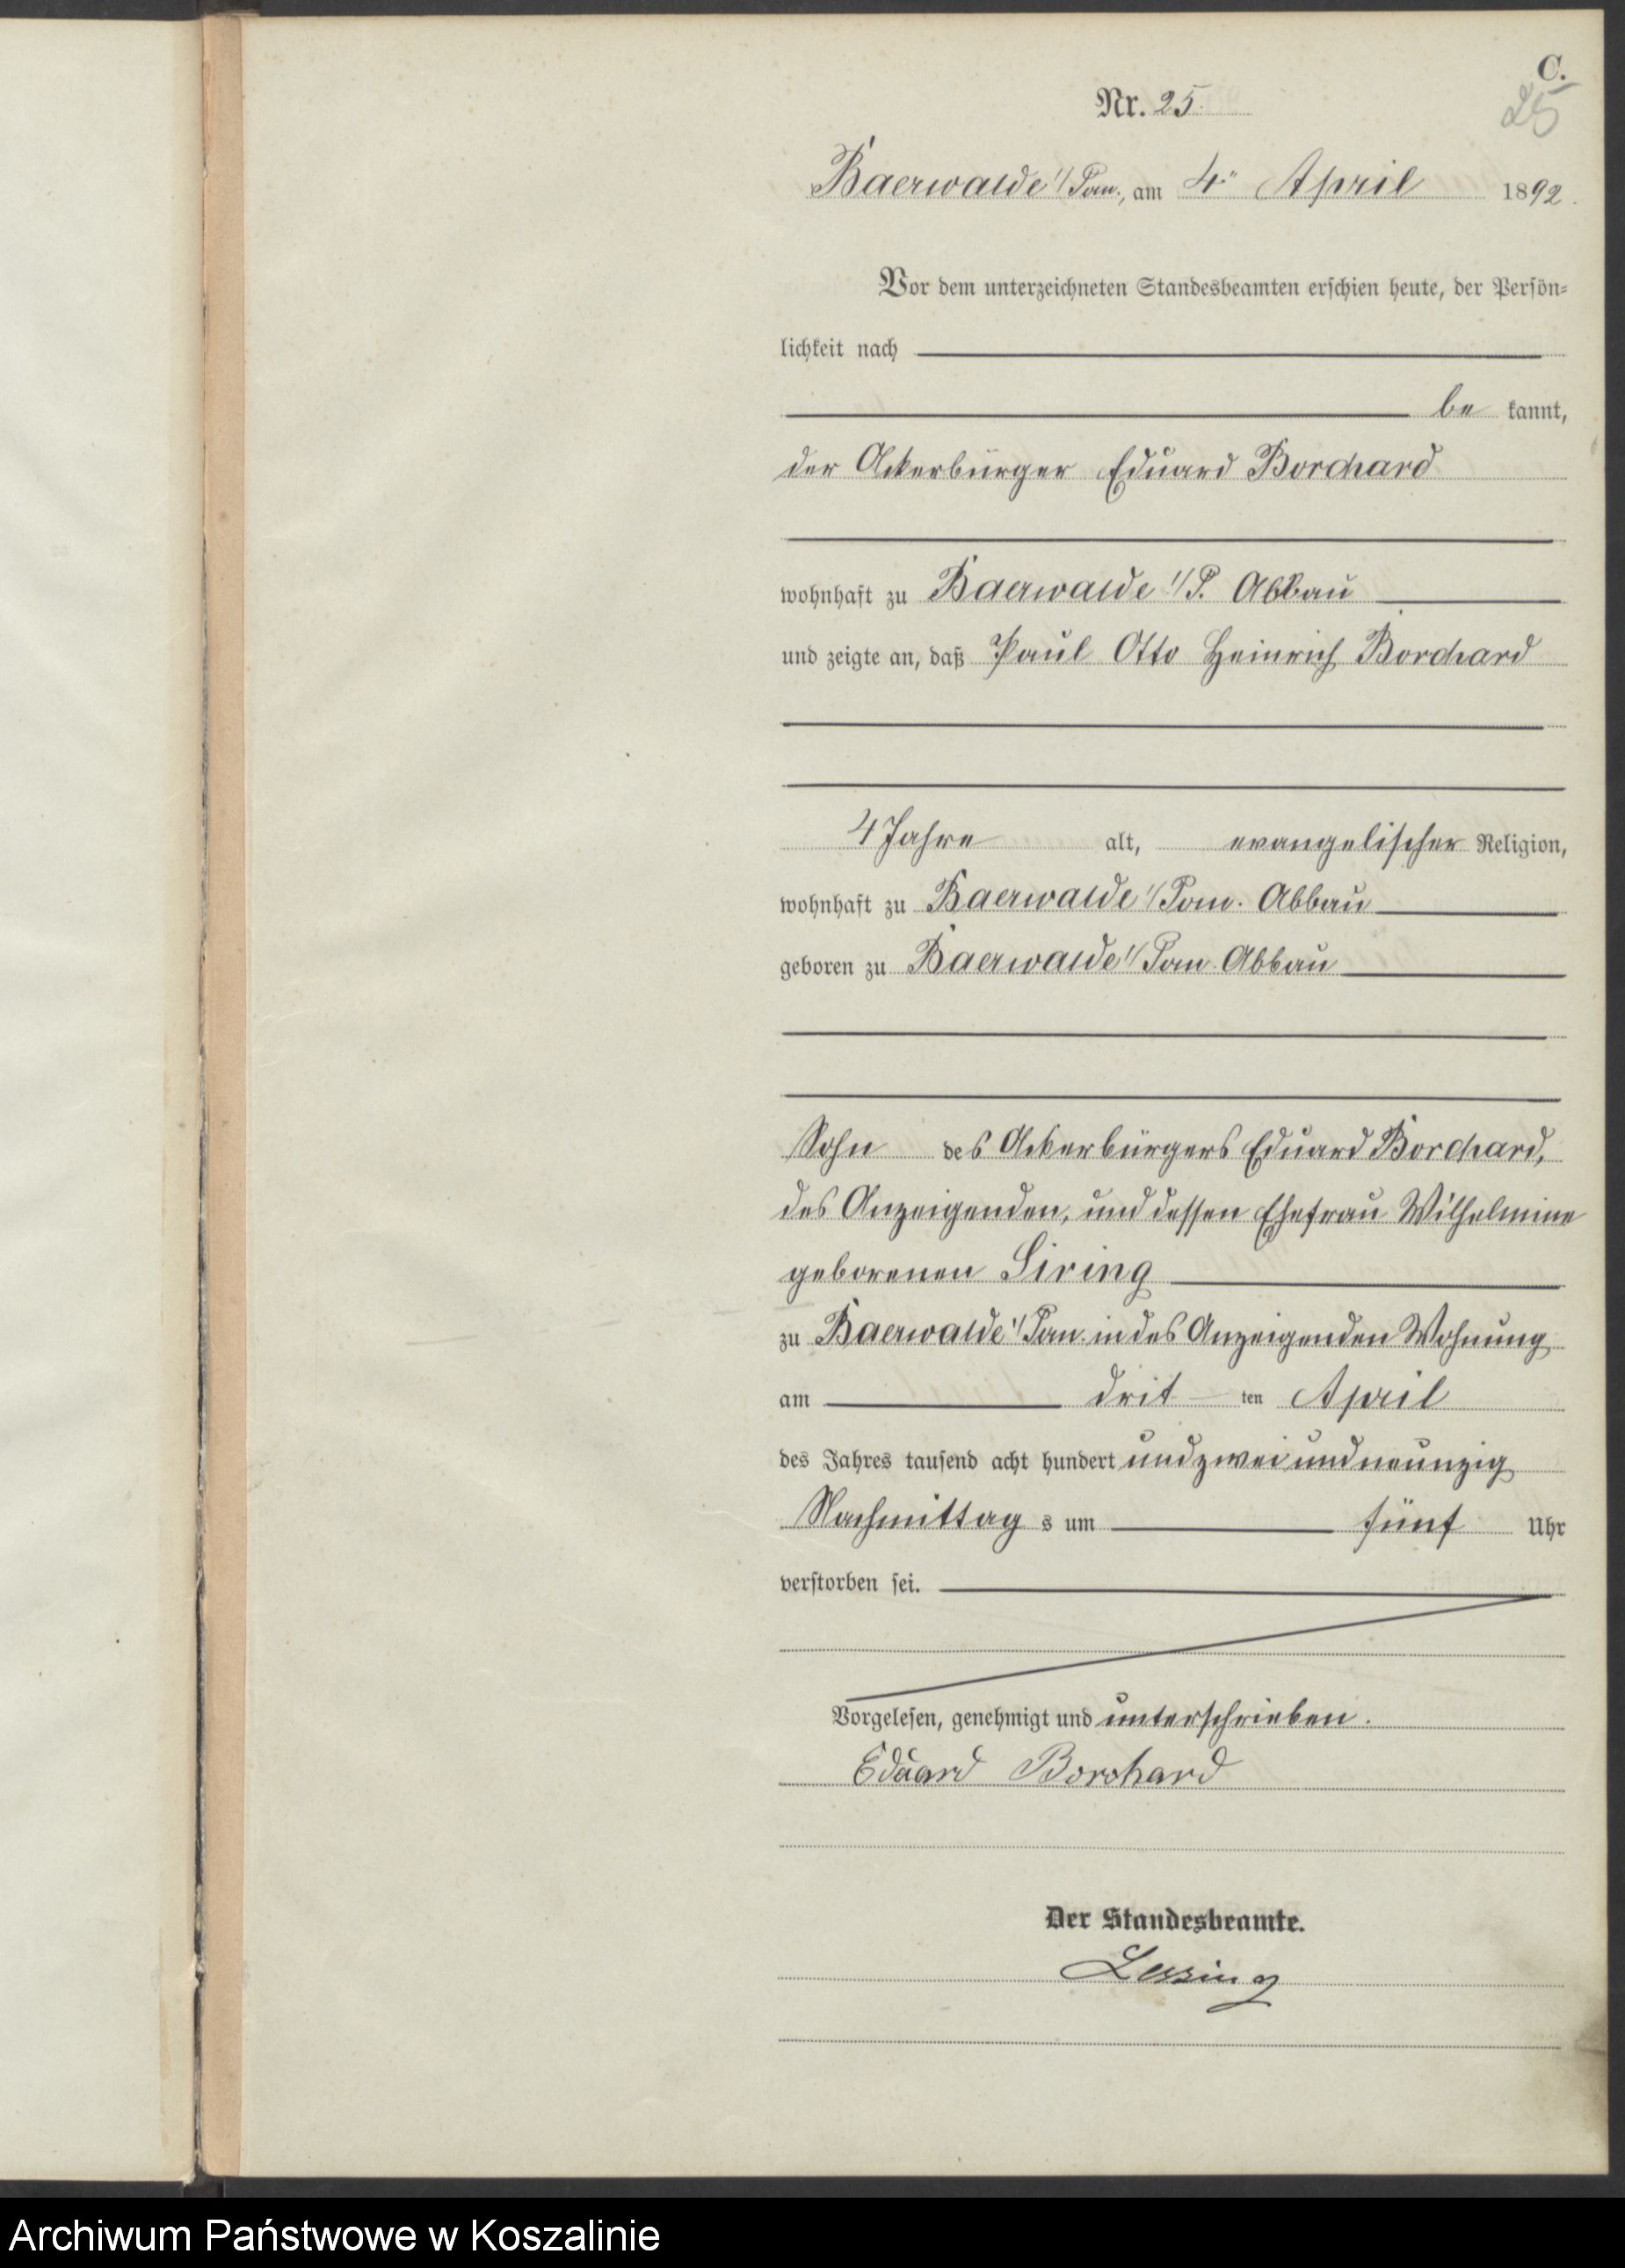 C.
25
Nr. 25.
Baerwalde i/Pom., am 4ten April 1892.
Vor dem unterzeichneten Standesbeamten erschien heute, der Persön-
lichkeit nach
be kannt,
der Ackerbürger Eduard Borchard
wohnhaft zu Baerwalde i/P. Abbau
und zeigte an, daß Paul Otto Heinrich Borchard
4 Jahre alt, evangelischer Religion,
wohnhaft zu Baerwalde i/Pom. Abbau
geboren zu Baerwalde i/Pom. Abbau
Sohn des Ackerbürgers Eduard Borchard,
des Anzeigenden, und dessen Ehefrau Wilhelmine
geborenen
zu Baerwalde i/Pom. in des Anzeigenden Wohnung
am drit ten April
des Jahres tausend acht hundert und zwei und neunzig
Nachmittag s um fünf Uhr
verstorben sei.
Vorgelesen, genehmigt und unterschrieben.
Eduard Borchard
Der Standesbeamte.
Archiwum Państwowe w Koszalinie